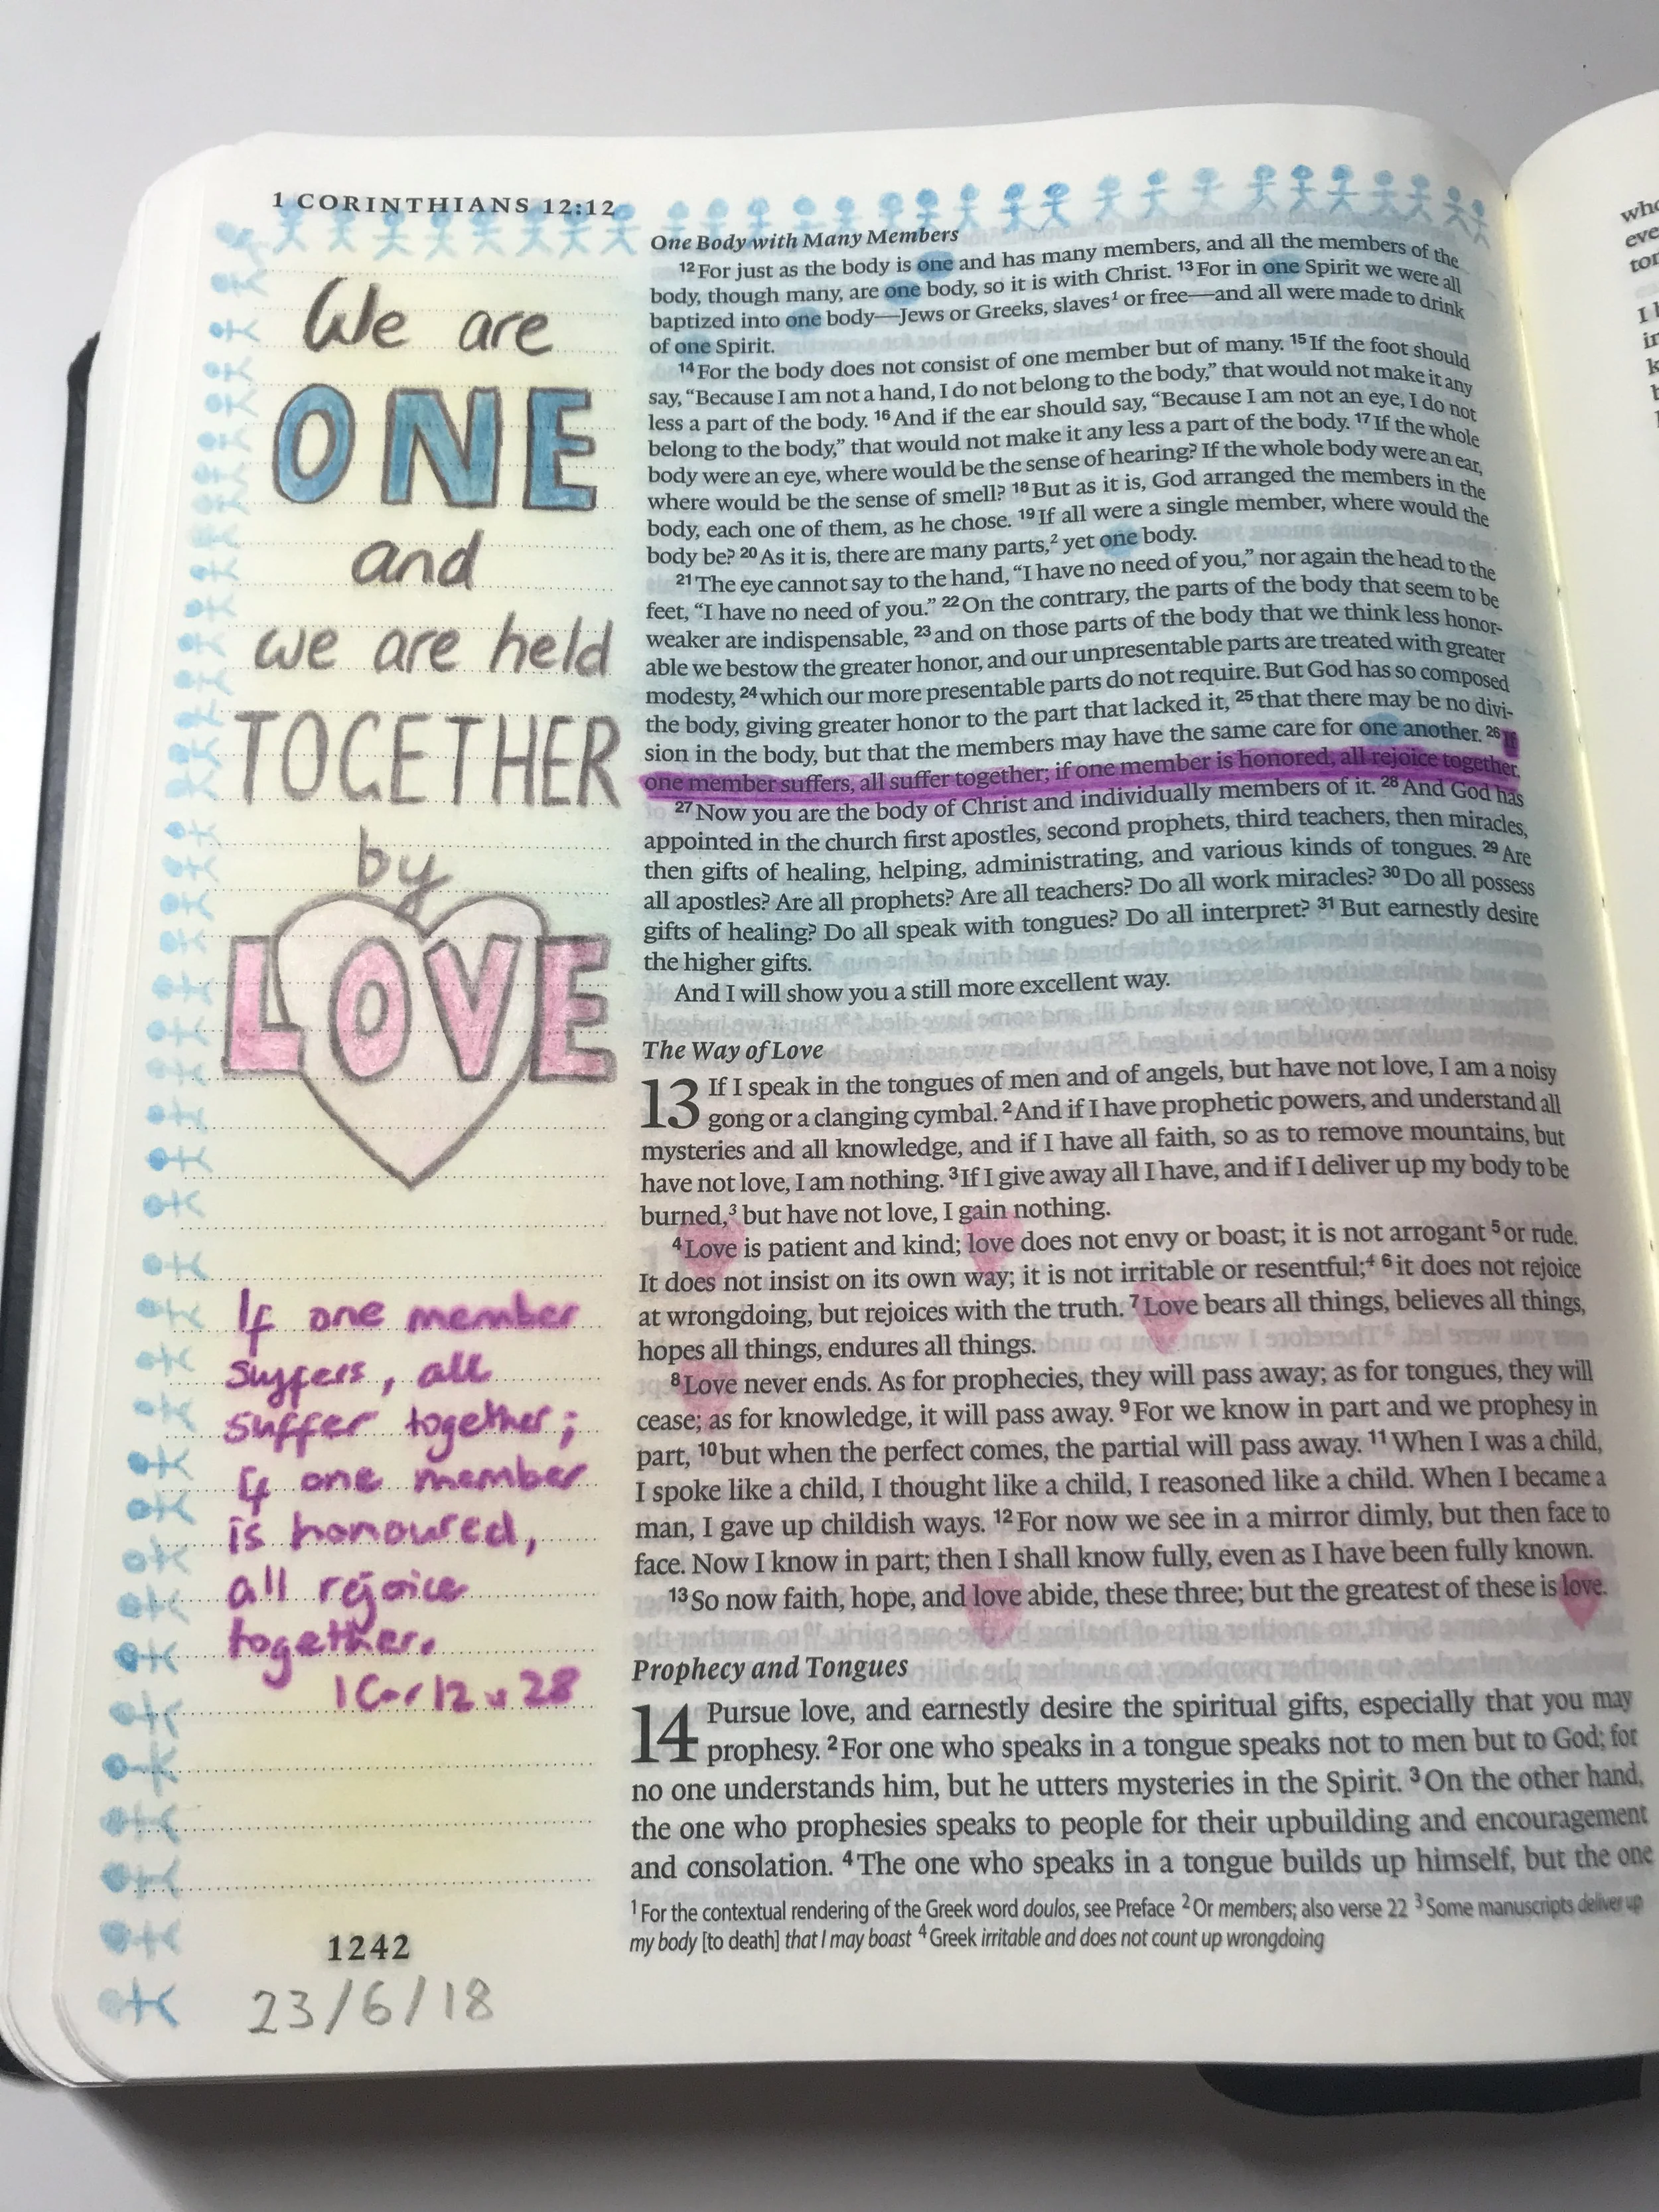 1 CORINTHIANS 12:12
We are
ONE
and
we are held
TOGETHER
by
LOVE
If one member
suffers, all
suffer together;
if one member
is honoured,
all rejoice
together.
1 Cor 12 v 28
1242
23/6/18
One Body with Many Members
12 For just as the body is one and has many members, and all the members of the
body, though many, are one body, so it is with Christ. 13 For in one Spirit we were all
baptized into one body—Jews or Greeks, slaves1 or free—and all were made to drink
of one Spirit.
14 For the body does not consist of one member but of many. 15 If the foot should
say, “Because I am not a hand, I do not belong to the body,” that would not make it any
less a part of the body. 16 And if the ear should say, “Because I am not an eye, I do not
belong to the body,” that would not make it any less a part of the body. 17 If the whole
body were an eye, where would be the sense of hearing? If the whole body were an ear,
where would be the sense of smell? 18 But as it is, God arranged the members in the
body, each one of them, as he chose. 19 If all were a single member, where would the
body be? 20 As it is, there are many parts,2 yet one body.
21 The eye cannot say to the hand, “I have no need of you,” nor again the head to the
feet, “I have no need of you.” 22 On the contrary, the parts of the body that seem to be
weaker are indispensable, 23 and on those parts of the body that we think less honor-
able we bestow the greater honor, and our unpresentable parts are treated with greater
modesty, 24 which our more presentable parts do not require. But God has so composed
the body, giving greater honor to the part that lacked it, 25 that there may be no divi-
sion in the body, but that the members may have the same care for one another. 26 If
one member suffers, all suffer together; if one member is honored, all rejoice together.
27 Now you are the body of Christ and individually members of it. 28 And God has
appointed in the church first apostles, second prophets, third teachers, then miracles,
then gifts of healing, helping, administrating, and various kinds of tongues. 29 Are
all apostles? Are all prophets? Are all teachers? Do all work miracles? 30 Do all possess
gifts of healing? Do all speak with tongues? Do all interpret? 31 But earnestly desire
the higher gifts.
And I will show you a still more excellent way.
The Way of Love
13 If I speak in the tongues of men and of angels, but have not love, I am a noisy
gong or a clanging cymbal. 2 And if I have prophetic powers, and understand all
mysteries and all knowledge, and if I have all faith, so as to remove mountains, but
have not love, I am nothing. 3 If I give away all I have, and if I deliver up my body to be
burned,3 but have not love, I gain nothing.
4 Love is patient and kind; love does not envy or boast; it is not arrogant 5 or rude.
It does not insist on its own way; it is not irritable or resentful;4 6 it does not rejoice
at wrongdoing, but rejoices with the truth. 7 Love bears all things, believes all things,
hopes all things, endures all things.
8 Love never ends. As for prophecies, they will pass away; as for tongues, they will
cease; as for knowledge, it will pass away. 9 For we know in part and we prophesy in
part, 10 but when the perfect comes, the partial will pass away. 11 When I was a child,
I spoke like a child, I thought like a child, I reasoned like a child. When I became a
man, I gave up childish ways. 12 For now we see in a mirror dimly, but then face to
face. Now I know in part; then I shall know fully, even as I have been fully known.
13 So now faith, hope, and love abide, these three; but the greatest of these is love.
Prophecy and Tongues
14 Pursue love, and earnestly desire the spiritual gifts, especially that you may
prophesy. 2 For one who speaks in a tongue speaks not to men but to God; for
no one understands him, but he utters mysteries in the Spirit. 3 On the other hand,
the one who prophesies speaks to people for their upbuilding and encouragement
and consolation. 4 The one who speaks in a tongue builds up himself, but the one
1 For the contextual rendering of the Greek word doulos, see Preface 2 Or members; also verse 22 3 Some manuscripts deliver up
my body [to death] that I may boast 4 Greek irritable and does not count up wrongdoing